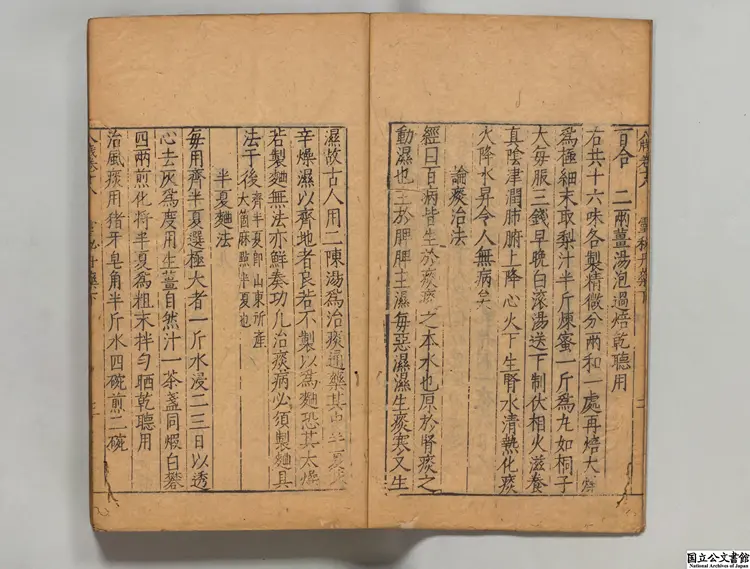 百合 二兩薑湯泡過焙乾聽用
右共十六味各製精微分兩和一處再焙大燥
爲極細末取梨汁半斤煉蜜一斤爲丸如桐子
大每服三錢早晚白滚湯送下制伏相火滋養
真陰津潤肺腑上降心火下生腎水清熱化痰
火降水昇令人無病矣
論痰治法
經曰百病皆生於痰痰之本水也原於腎痰之
動濕也主於脾脾主濕每惡濕濕生痰寒又生
濕故古人用二陳湯爲治痰通藥其中半夏
辛燥濕以齊地者良若不製以爲麯恐其太燥
若製麯無法亦鮮奏功凢治痰病必須製麯具
法于後 齊半夏即山東所産
大箇麻點半夏也
半夏麯法
每用齊半夏選極大者一斤水浸二三日以透
心去灰爲度用生薑自然汁一茶盞同煆白礬
四兩煎化將半夏爲粗末拌匀晒乾聽用
治風痰用猪牙皂角半斤水四碗煎二碗
国立公文書館
National Archives of Japan